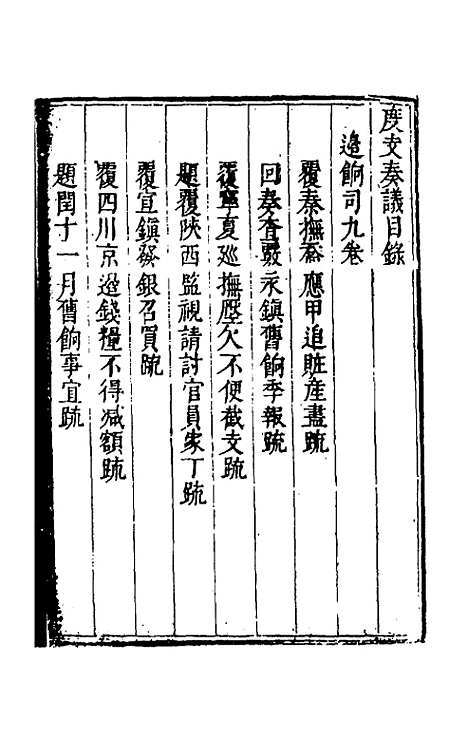 度支奏議目錄
邊餉司九卷
覆秦撫咨應甲追賍産盡疏
回奏查覈永鎮舊餉季報疏
覆寧夏巡撫壓欠不便截支疏
題覆陝西監視請討官員家丁疏
覆宣鎮發銀召買疏
覆四川京邊錢糧不得减額疏
題閏十一月舊餉事宜疏